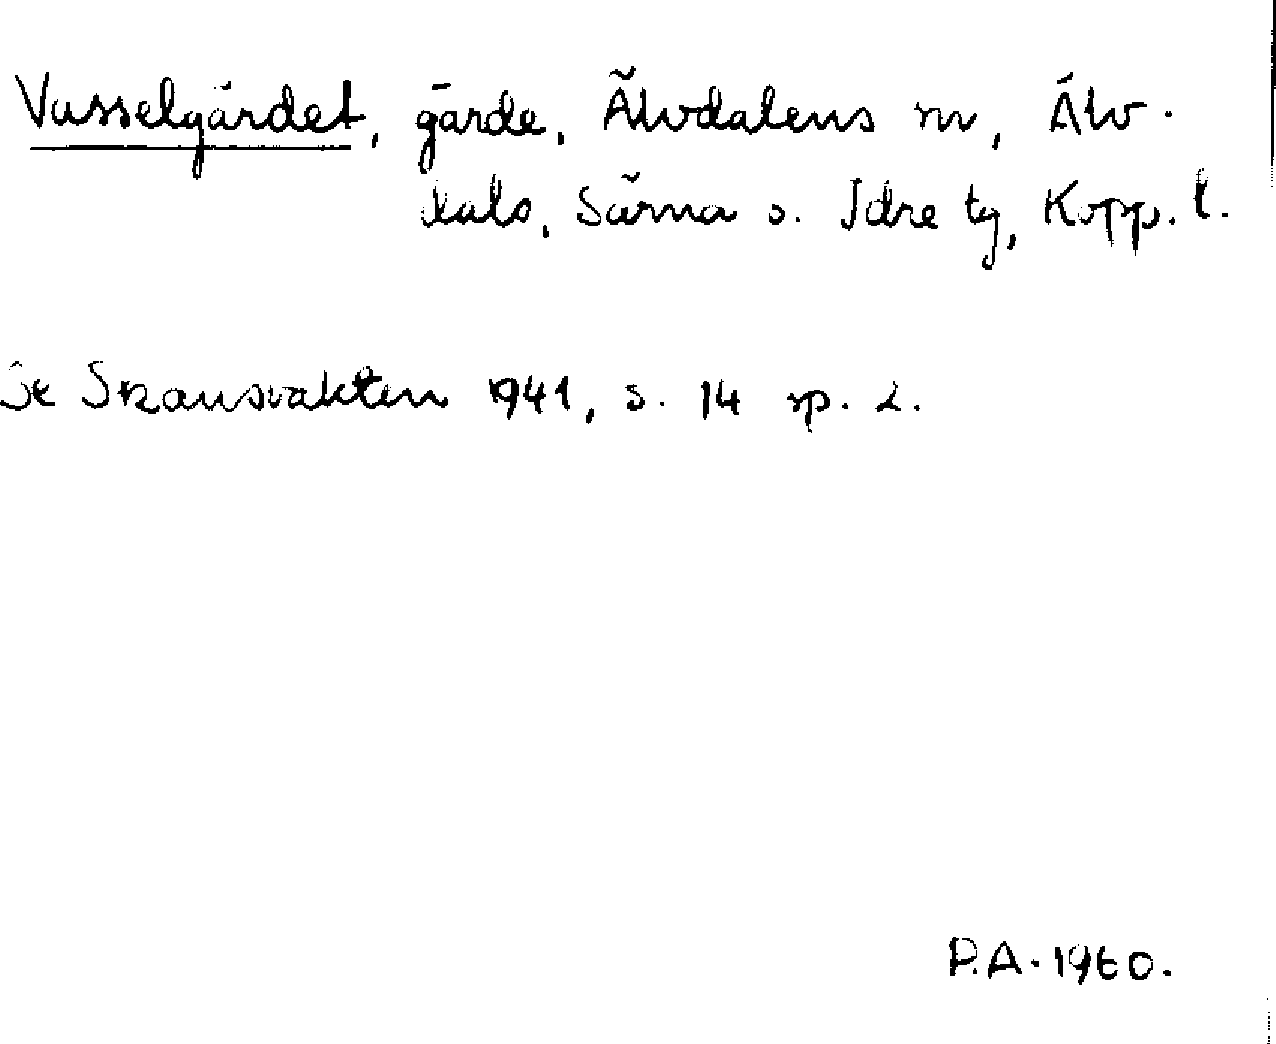 Vusselgärdet, gärde, Älvdalens sn, Älv-
dals, Särna o. Idre tg, Kopp. l.
Se Skansvakten 1941, s. 14 sp. 2.
P.A. 1960.